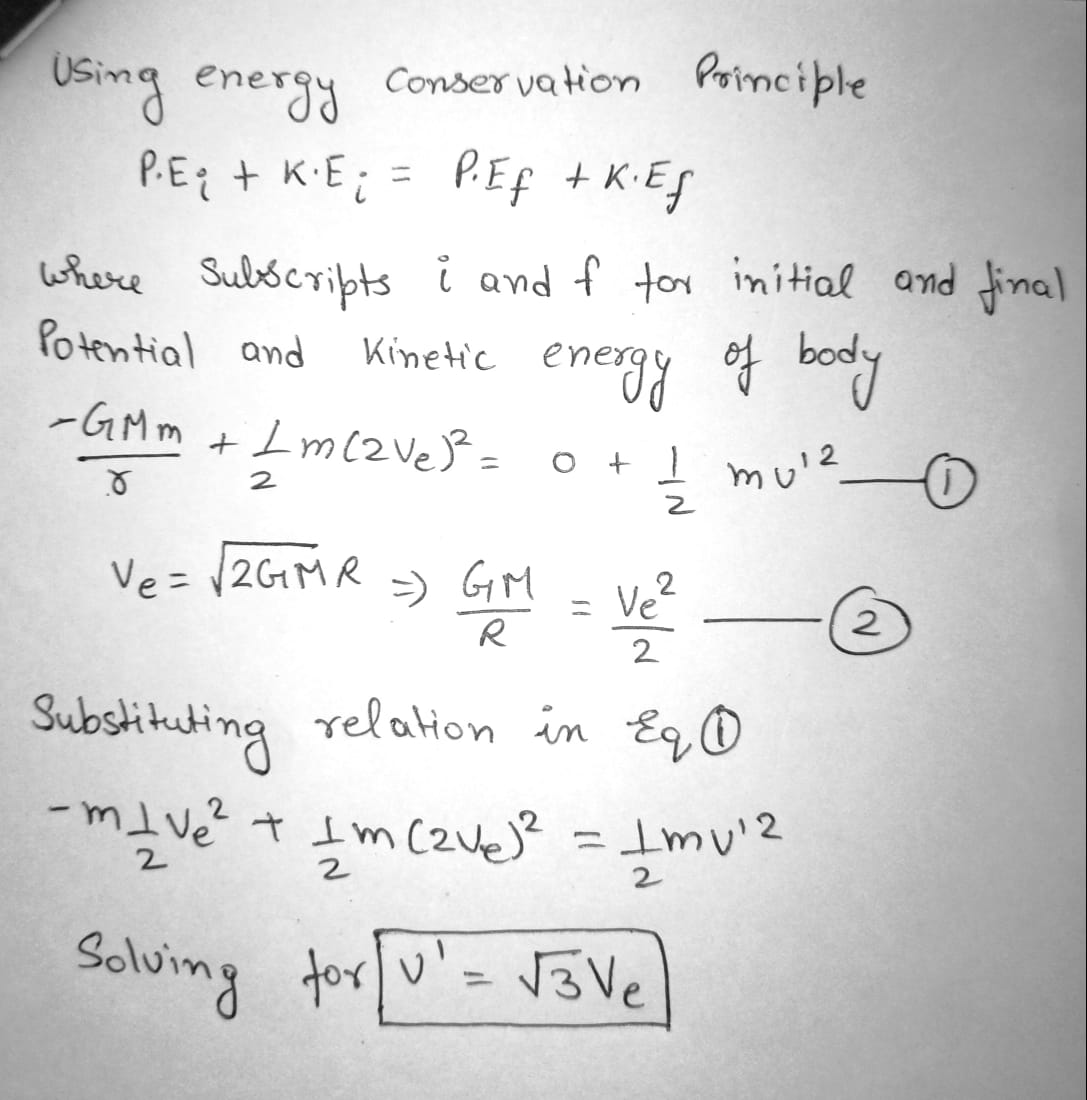 Using energy Conservation Principle
P.Ei + K.Ei = P.Ef + K.Ef
where Subscripts i and f for initial and final
Potential and Kinetic energy of body
-GMm/r + 1/2 m(2Ve)² = 0 + 1/2 mv'² — ①
Ve = √2GMR ⇒ GM/R = Ve²/2 — ②
Substituting relation in Eq ①
-m 1/2 Ve² + 1/2 m(2Ve)² = 1/2 mv'²
Solving for v' = √3 Ve